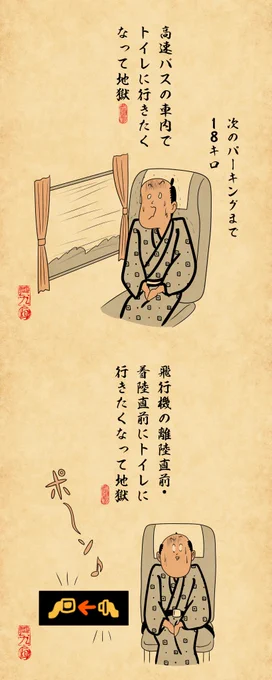 高速バスの車内で
トイレに行きたく
なって地獄
次のパーキングまで
18キロ
飛行機の離陸直前・
着陸直前にトイレに
行きたくなって地獄
ポ〜ン♪